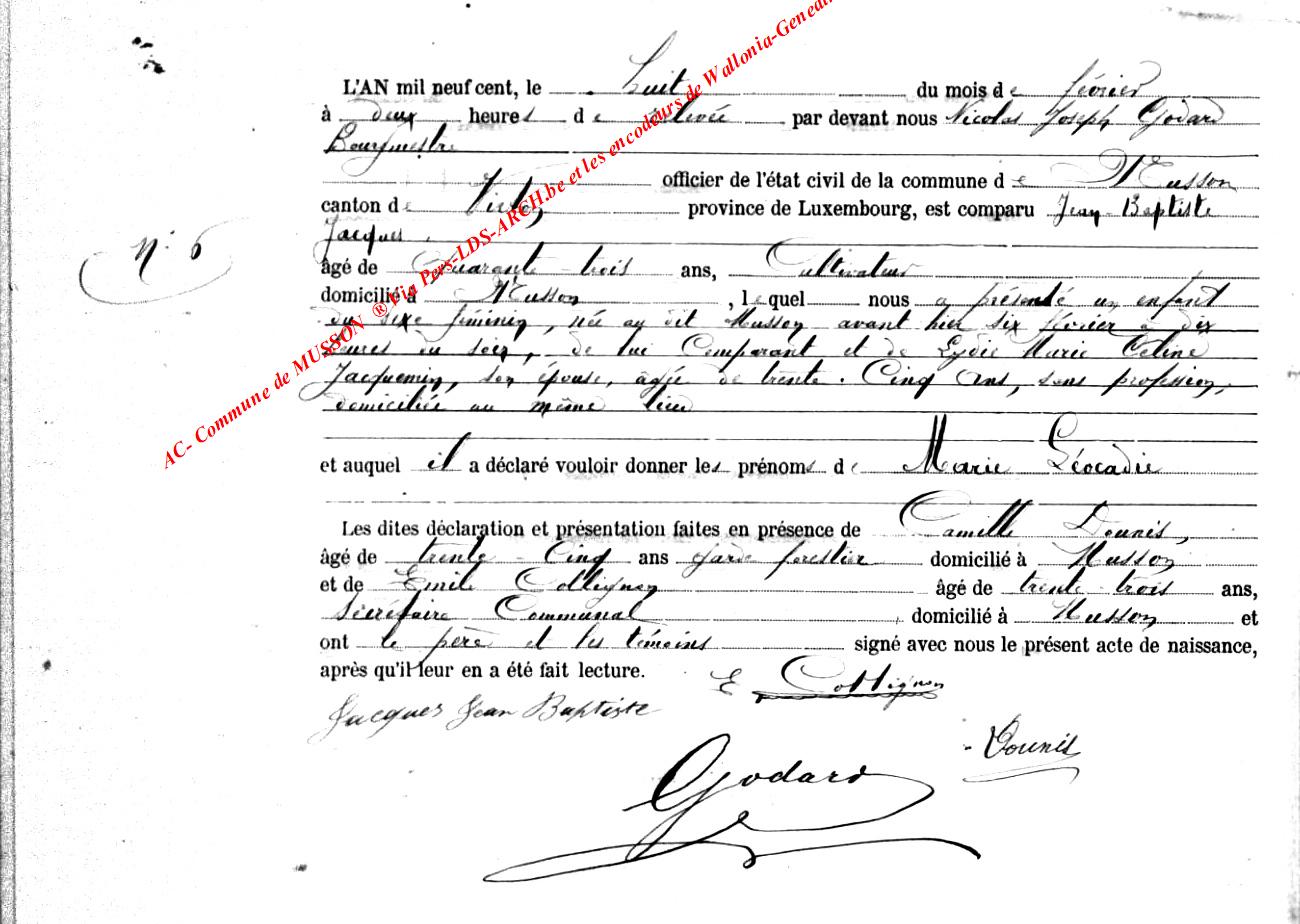 AC- Commune de MUSSON ® Via Pers-LDS-ARCH.be et les encodeurs de Wallonia-Genealo
L'AN mil neuf cent, le huit du mois de février
à deux heures de relevée par devant nous Nicolas Joseph Godard
Bourgmestre
officier de l'état civil de la commune de Musson
canton de Virton province de Luxembourg, est comparu Jean Baptiste
Jacques,
N° 6
âgé de quarante-trois ans, Cultivateur
domicilié à Musson, lequel nous a présenté un enfant
du sexe féminin, née au dit Musson avant hier six février à dix
heures du soir, de lui Comparant et de Lydie Marie Céline
Jacquemin, son épouse, âgée de trente-Cinq ans, sans profession,
domiciliés au même lieu
et auquel il a déclaré vouloir donner les prénoms de Marie Léocadie
Les dites déclaration et présentation faites en présence de Camille Dounis,
âgé de trente-Cinq ans garde forestier domicilié à Musson
et de Emile Collignon âgé de trente-trois ans,
Secrétaire Communal, domicilié à Musson et
ont le père et les témoins signé avec nous le présent acte de naissance,
après qu'il leur en a été fait lecture.
E Collignon
Jacques Jean Baptiste
Dounis
Godard